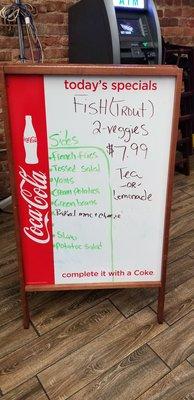 ATM
today's specials
Fish (Trout)
2-veggies
$7.99
Tea
-OR-
Lemonade
Sides
French Fries
Tossed Salad
Yams
Green Beans
Baked mac + cheese
Slaw
Potatoe Salad
Coca-Cola
complete it with a Coke.